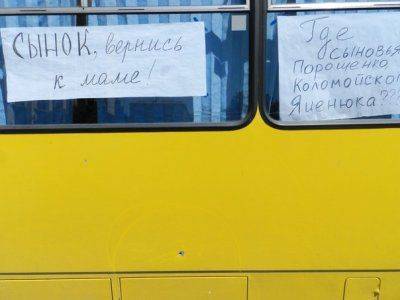 СЫНОК, вернись
к маме!
Где
сыновья
Порошенко
Коломойского
Яценюка???